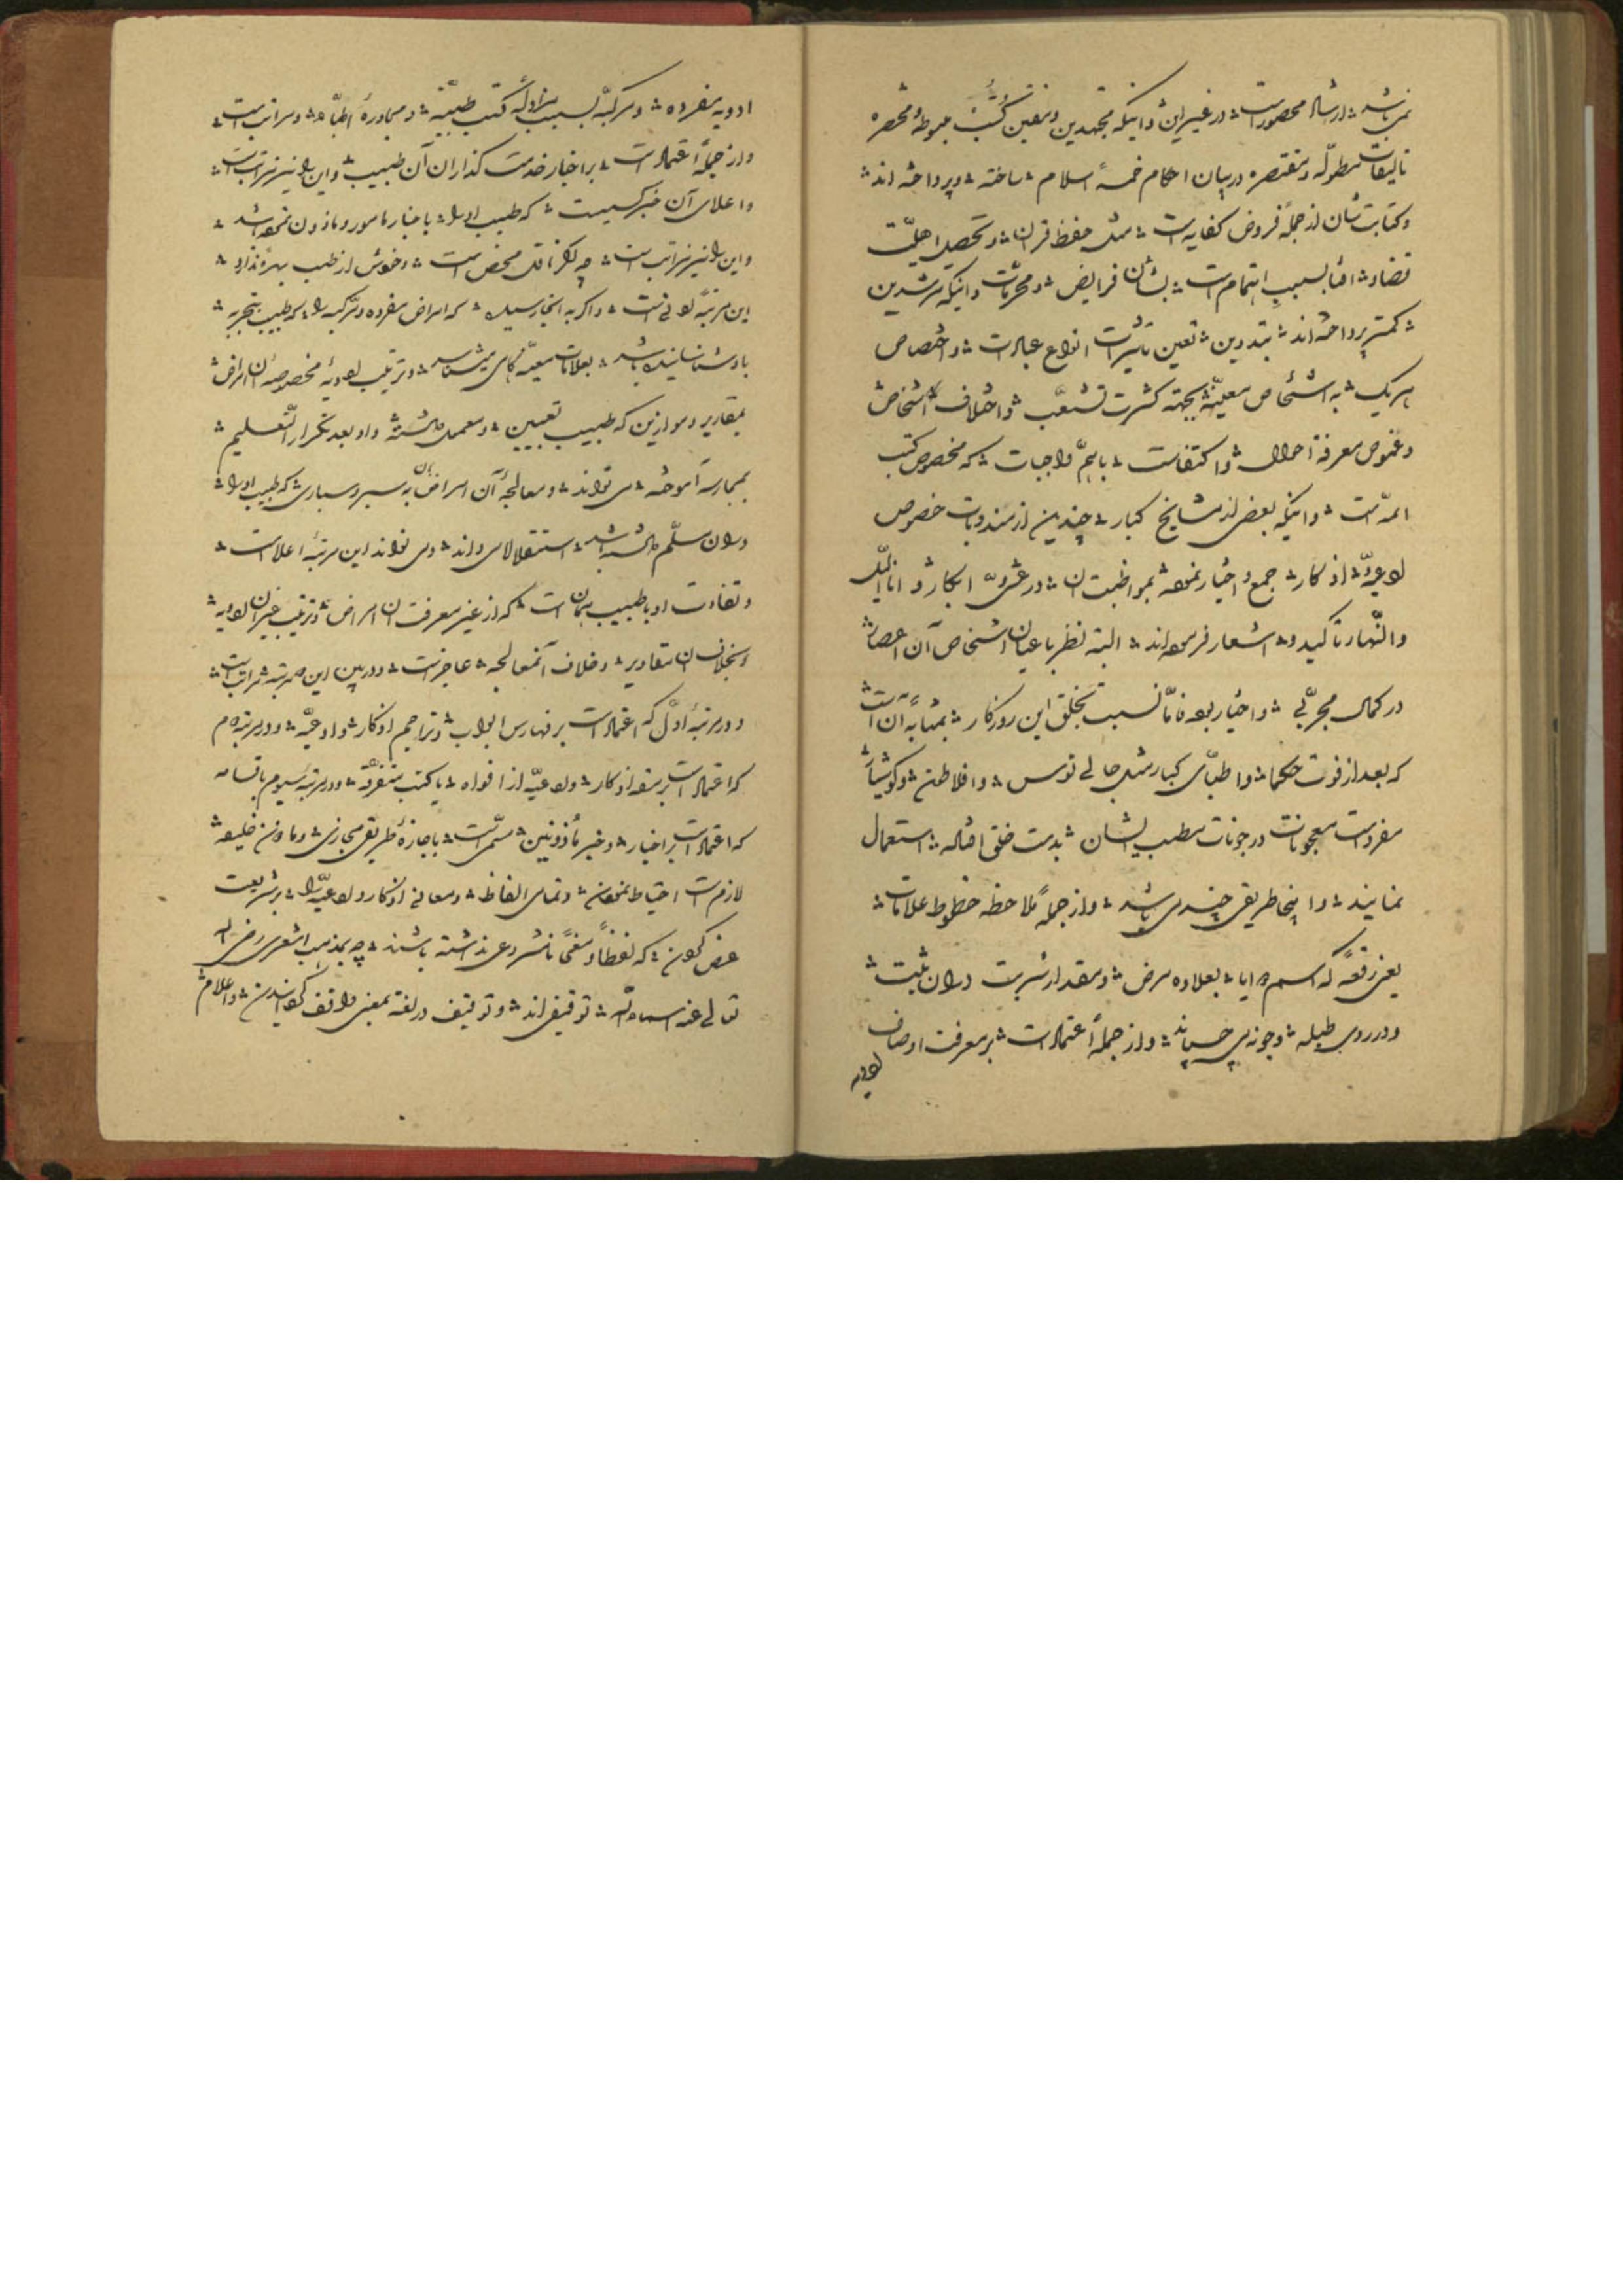 نمی باشد ارشاد محصورست در غیر این و اینکه مجتهدین و متقین کتب مبسوطه و مختصره
تالیفات مطوله و مقتصره در بیان احکام خمسهٔ اسلام ساخته و پرداخته اند
و کتابت شان از جملهٔ فروض کفایه است مثل حفظ قران و تحصیل اهلیت
قضا و افتا بسبب اهتمام است بشان فرایض و محرمات و اینکه مرشدین
کمتر پرداخته اند بتدوین تعین تاثیرات انواع عبادات و اختصاص
هر یک به اشخاص معینه بجهته کثرت تشعب و اختلاف اشخاص
و غموض معرفة احوال و اکتفاست باهم واجبات که مخصوص کتب
ائمه است و اینکه بعضی از مشایخ کبار چندین از مندوبات خصوص
ادعیه و اذکار جمع و اختیار نموده بمواظبت ان در عشی و ابکار و اناء اللیل
والنهار تاکید و اشعار فرموده اند البته نظر باعیان اشخاص آن اعصار
در کمال مجربی و اختیار بوده فاما نسبت بخلق این روزکار بمثابهٔ آن است
که بعد از فوت حکما و اطبای کبار مثل جالینوس و افلاطون و کوشیار
مفردات معجونات در جونات مطب ایشان بدست خلق افتاده استعمال
نمایند و اینجا طریقی چند می باشد و از جمله ملاحظه خطوط علامات
یعنی رقعهٔ که اسم بعلاوه مرض و مقدار شربت دران ثبت
و در روی طبله و جونه می چسپاند و از جملهٔ اعتمادست بر معرفت اوصاف
ادویه
ادویه مفرده و مرکبه بسبب مزاولهٔ کتب طبیه و مجاورهٔ اطبا و مراتب است
و از جملهٔ اعتمادست بر اخبار خدمت کذاران آن طبیب و این را نیز مراتب است
و اعلای آن خبر کسیست که طبیب او را باخبار مامور و ماذون نموده باشد
و این را نیز مراتب است چه اکر ناقل محض است و خودش از طب بهره ندارد
این مرتبهٔ ادنی است و اکر به انجا رسیده که امراض مفرده و مرکبه را که طبیب بتجربه
باو شناسانیده باشد بعلامات معینه کاهی میشناسد و ترتیب ادویهٔ مخصوصهٔ ان امراض
بمقادیر و موازین که طبیب تعیین و معمول داشته و او بعد تکرار التعلیم
بممارسه آموخته می تواند و معالجهٔ آن امراض بان سپر و سپاری که طبیب او را
دران سلم داشته باشد استقلالا می داند و می تواند این مرتبهٔ اعلا است
و تفاوت او با طبیب همان است که از غیر معرفت ان امراض و ترتیب غیر ان ادویه
و بخلاف ان مقادیر و خلاف آنمعالجه عاجز است و در بین این مرتبه مراتب است
و در مرتبهٔ اول که اعتمادست بر فهارس ابواب و تراجم اذکار و ادعیه و در مرتبه دوم
که اعتمادست بر اذکار و ادعیه از افواه یا کتب متفرقه و در مرتبه سیوم باقسامه
که اعتمادست بر اخبار و خبر ماذونین باجازهٔ طریق مجازی و ماذون خلیفه
لازم است احتیاط نمودن و تمامی الفاظ و معانی اذکار و ادعیه را بر شریعت
عرض کردن که لفظاً و معنیً نامشروعی نداشته باشند چه بمذهب اشعری رضی الله
تعالی عنه اسماء الله توقیفی اند و توقیف در لغة بمعنی واقف کردانیدن و اعلام